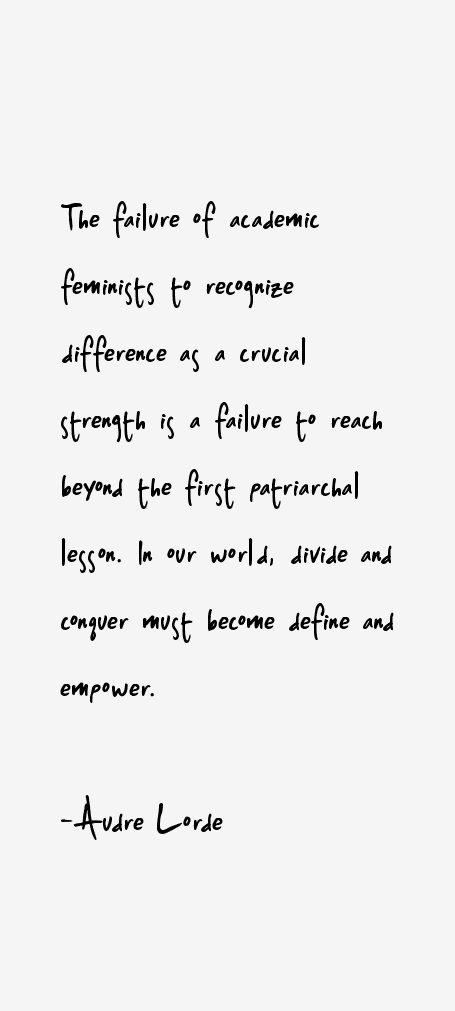 The failure of academic
feminists to recognize
difference as a crucial
strength is a failure to reach
beyond the first patriarchal
lesson. In our world, divide and
conquer must become define and
empower.
-Audre Lorde